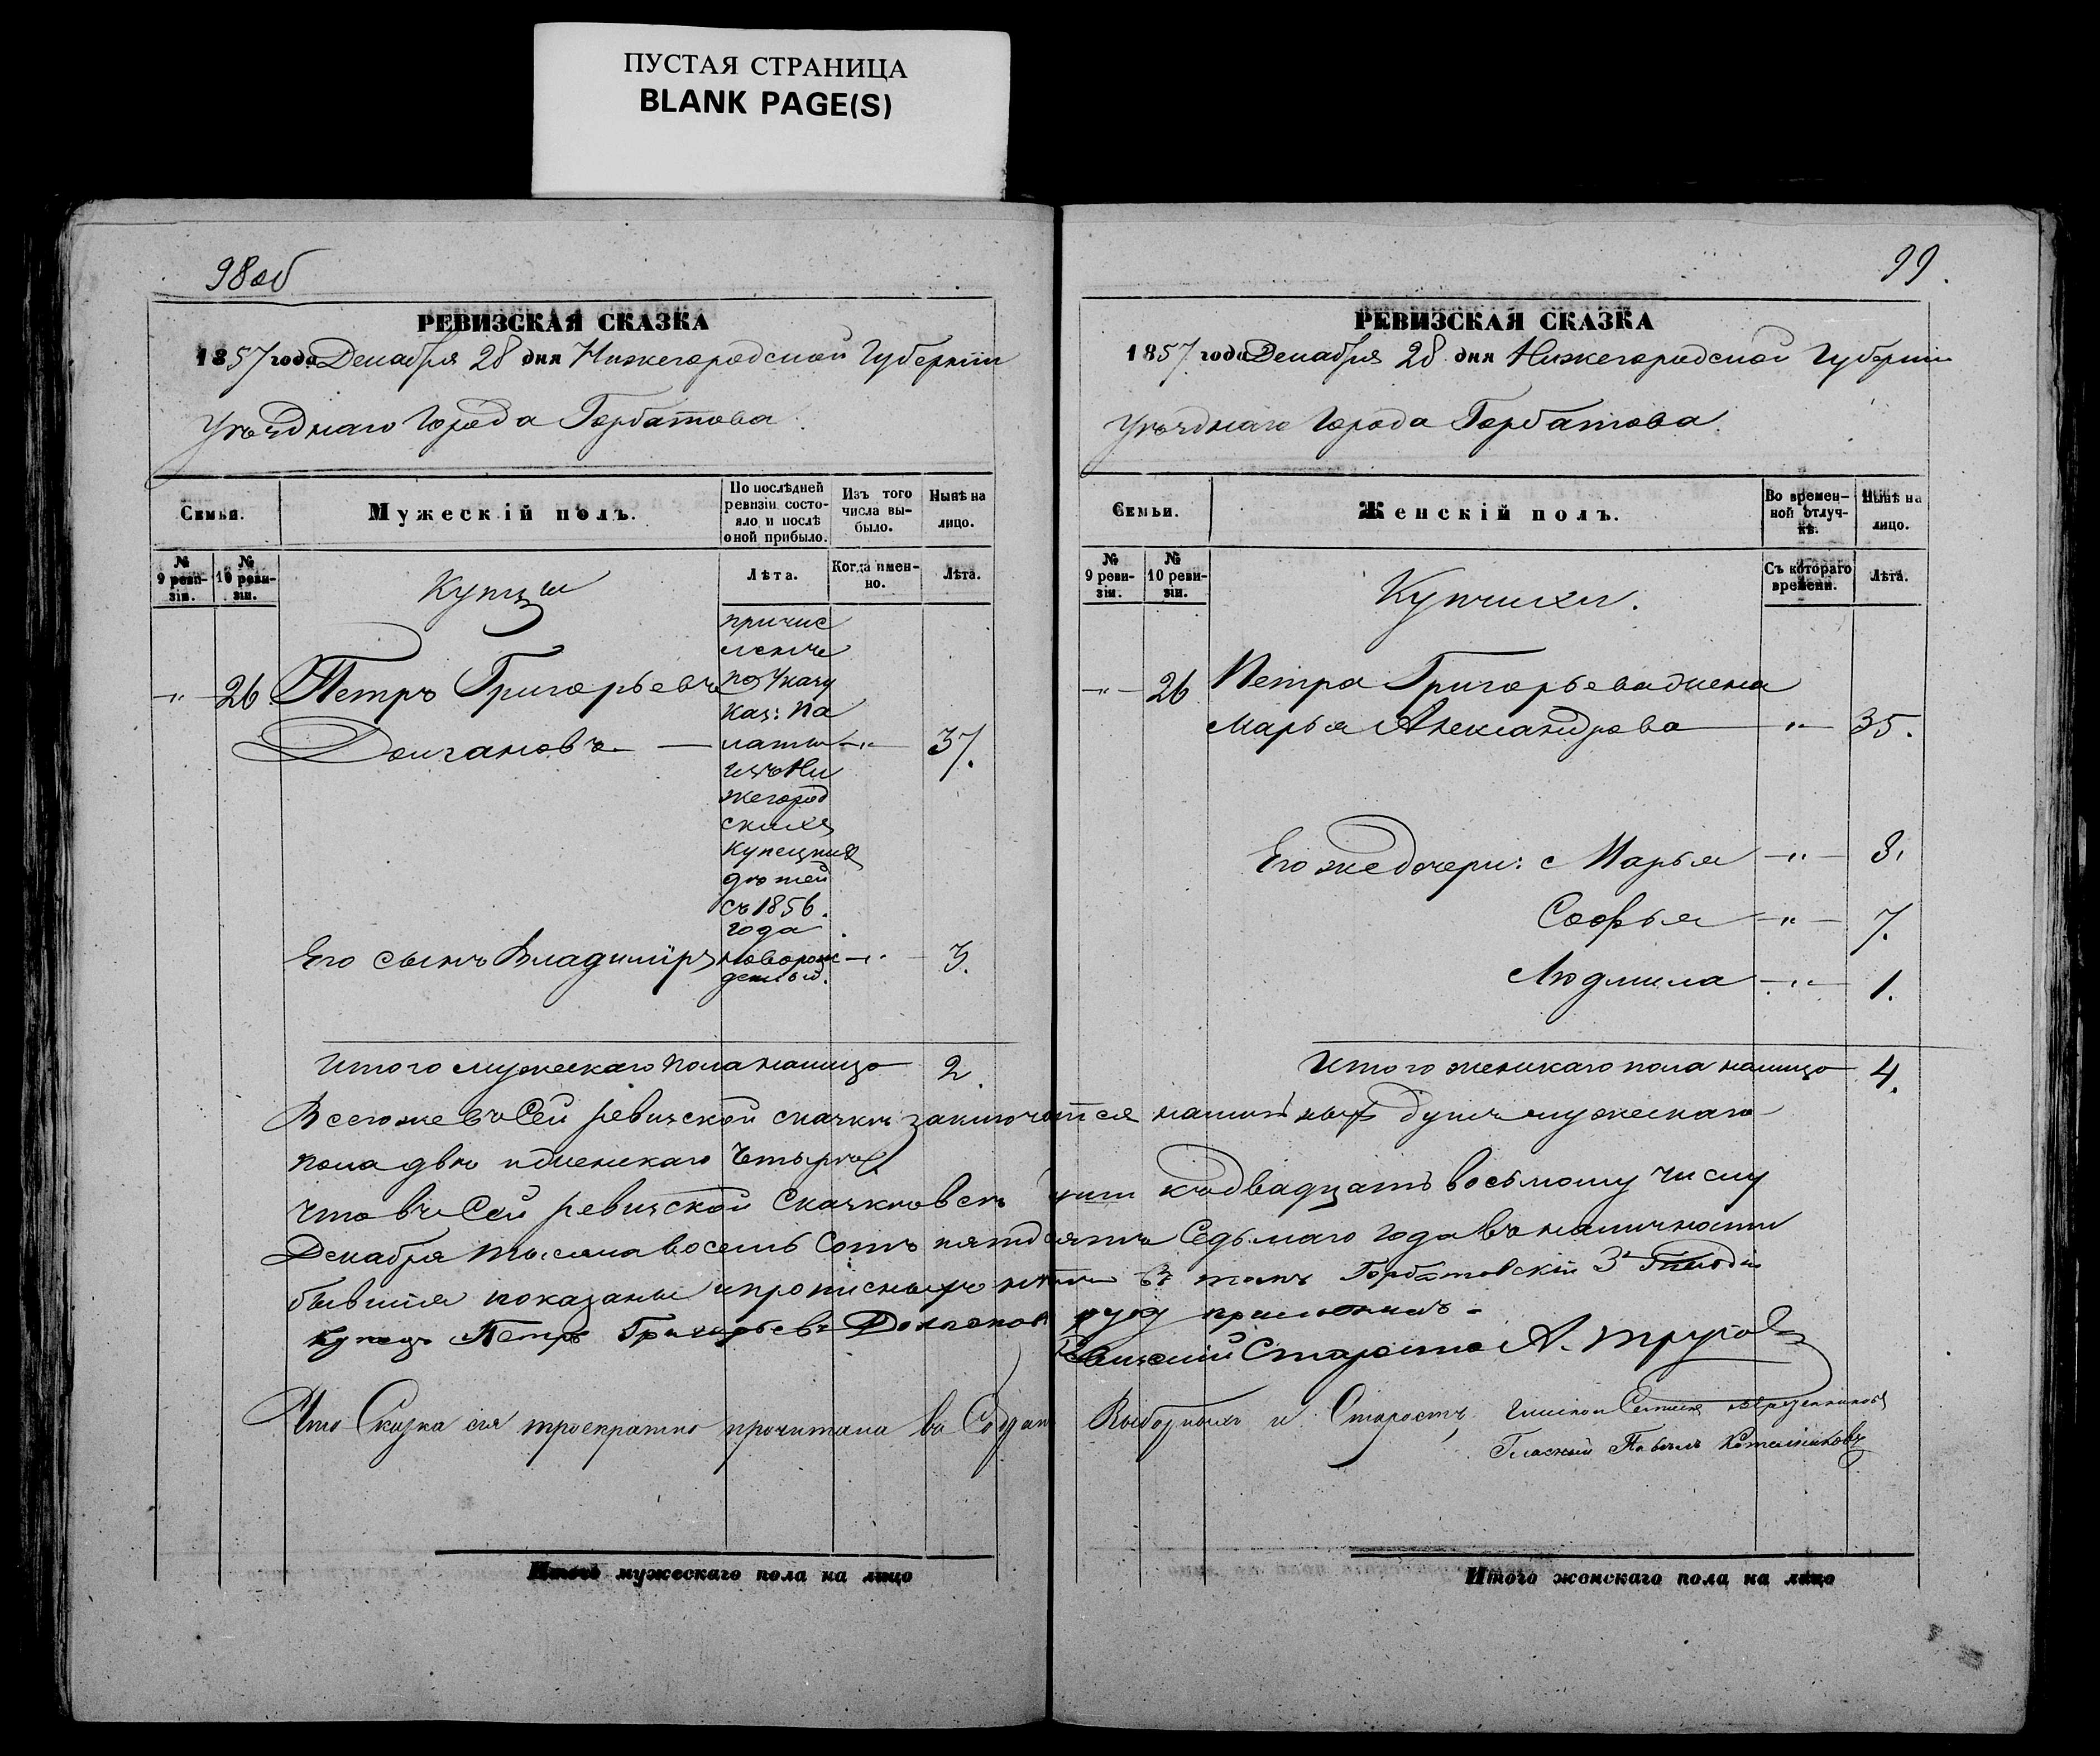 ПУСТАЯ СТРАНИЦА
BLANK PAGE(S)
98 об
РЕВИЗСКАЯ СКАЗКА
1857 года Декабря 28 дня Нижегородской Губерніи
Уѣзднаго Города Горбатова
Семьи.
Мужескій полъ.
По послѣдней ревизіи состояло и послѣ оной прибыло.
Изъ того числа выбыло.
Нынѣ на лицо.
№ 9 ревизіи.
№ 10 ревизіи.
Купцы
Лѣта.
Когда именно.
Лѣта.
причис
ленъ
по Указу
Каз: Па
латы
изъ Ни
жегород
скихъ
купецких
дѣтей
съ 1856.
года
—„— 26 Петръ Григорьевъ
Долгановъ — —„— 37.
Его сынъ Владиміръ новорож —„— 3.
денный.
Итого мужескаго пола налицо 2.
99.
РЕВИЗСКАЯ СКАЗКА
1857 года Декабря 28 дня Нижегородской Губерніи
Уѣзднаго Города Горбатова
Семьи.
Женскій полъ.
Во временной отлучкѣ.
Нынѣ на лицо.
№ 9 ревизіи.
№ 10 ревизіи.
Купчихи.
Съ котораго времени.
Лѣта.
—„— 26 Петра Григорьева жена
Марья Александрова —„— 35.
Его же дочери: Марья —„— 8.
Софья —„— 7.
Людмила —„— 1.
Итого женскаго пола налицо 4.
Всего же въ Сей ревизской сказкѣ заключается наличныхъ душъ мужескаго
пола двѣ и женскаго Четыре
Что въ Сей ревизской Сказкѣ всѣ души къ двадцать восьмому числу
Декабря тысяча восемь сотъ пятьдесятъ Седьмаго года въ наличности
бывшія показаны и прописныхъ нѣтъ въ томъ Горбатовскій 3й Гильдіи
купецъ Петръ Григорьевъ Долганов руку приложилъ.
Староста А. Трусовъ
Что Сказка сія троекратно прочитана въ Собран Выборныхъ и Старостъ,
Гласный Павелъ Котельниковъ
Итого мужескаго пола на лицо
Итого женскаго пола на лицо